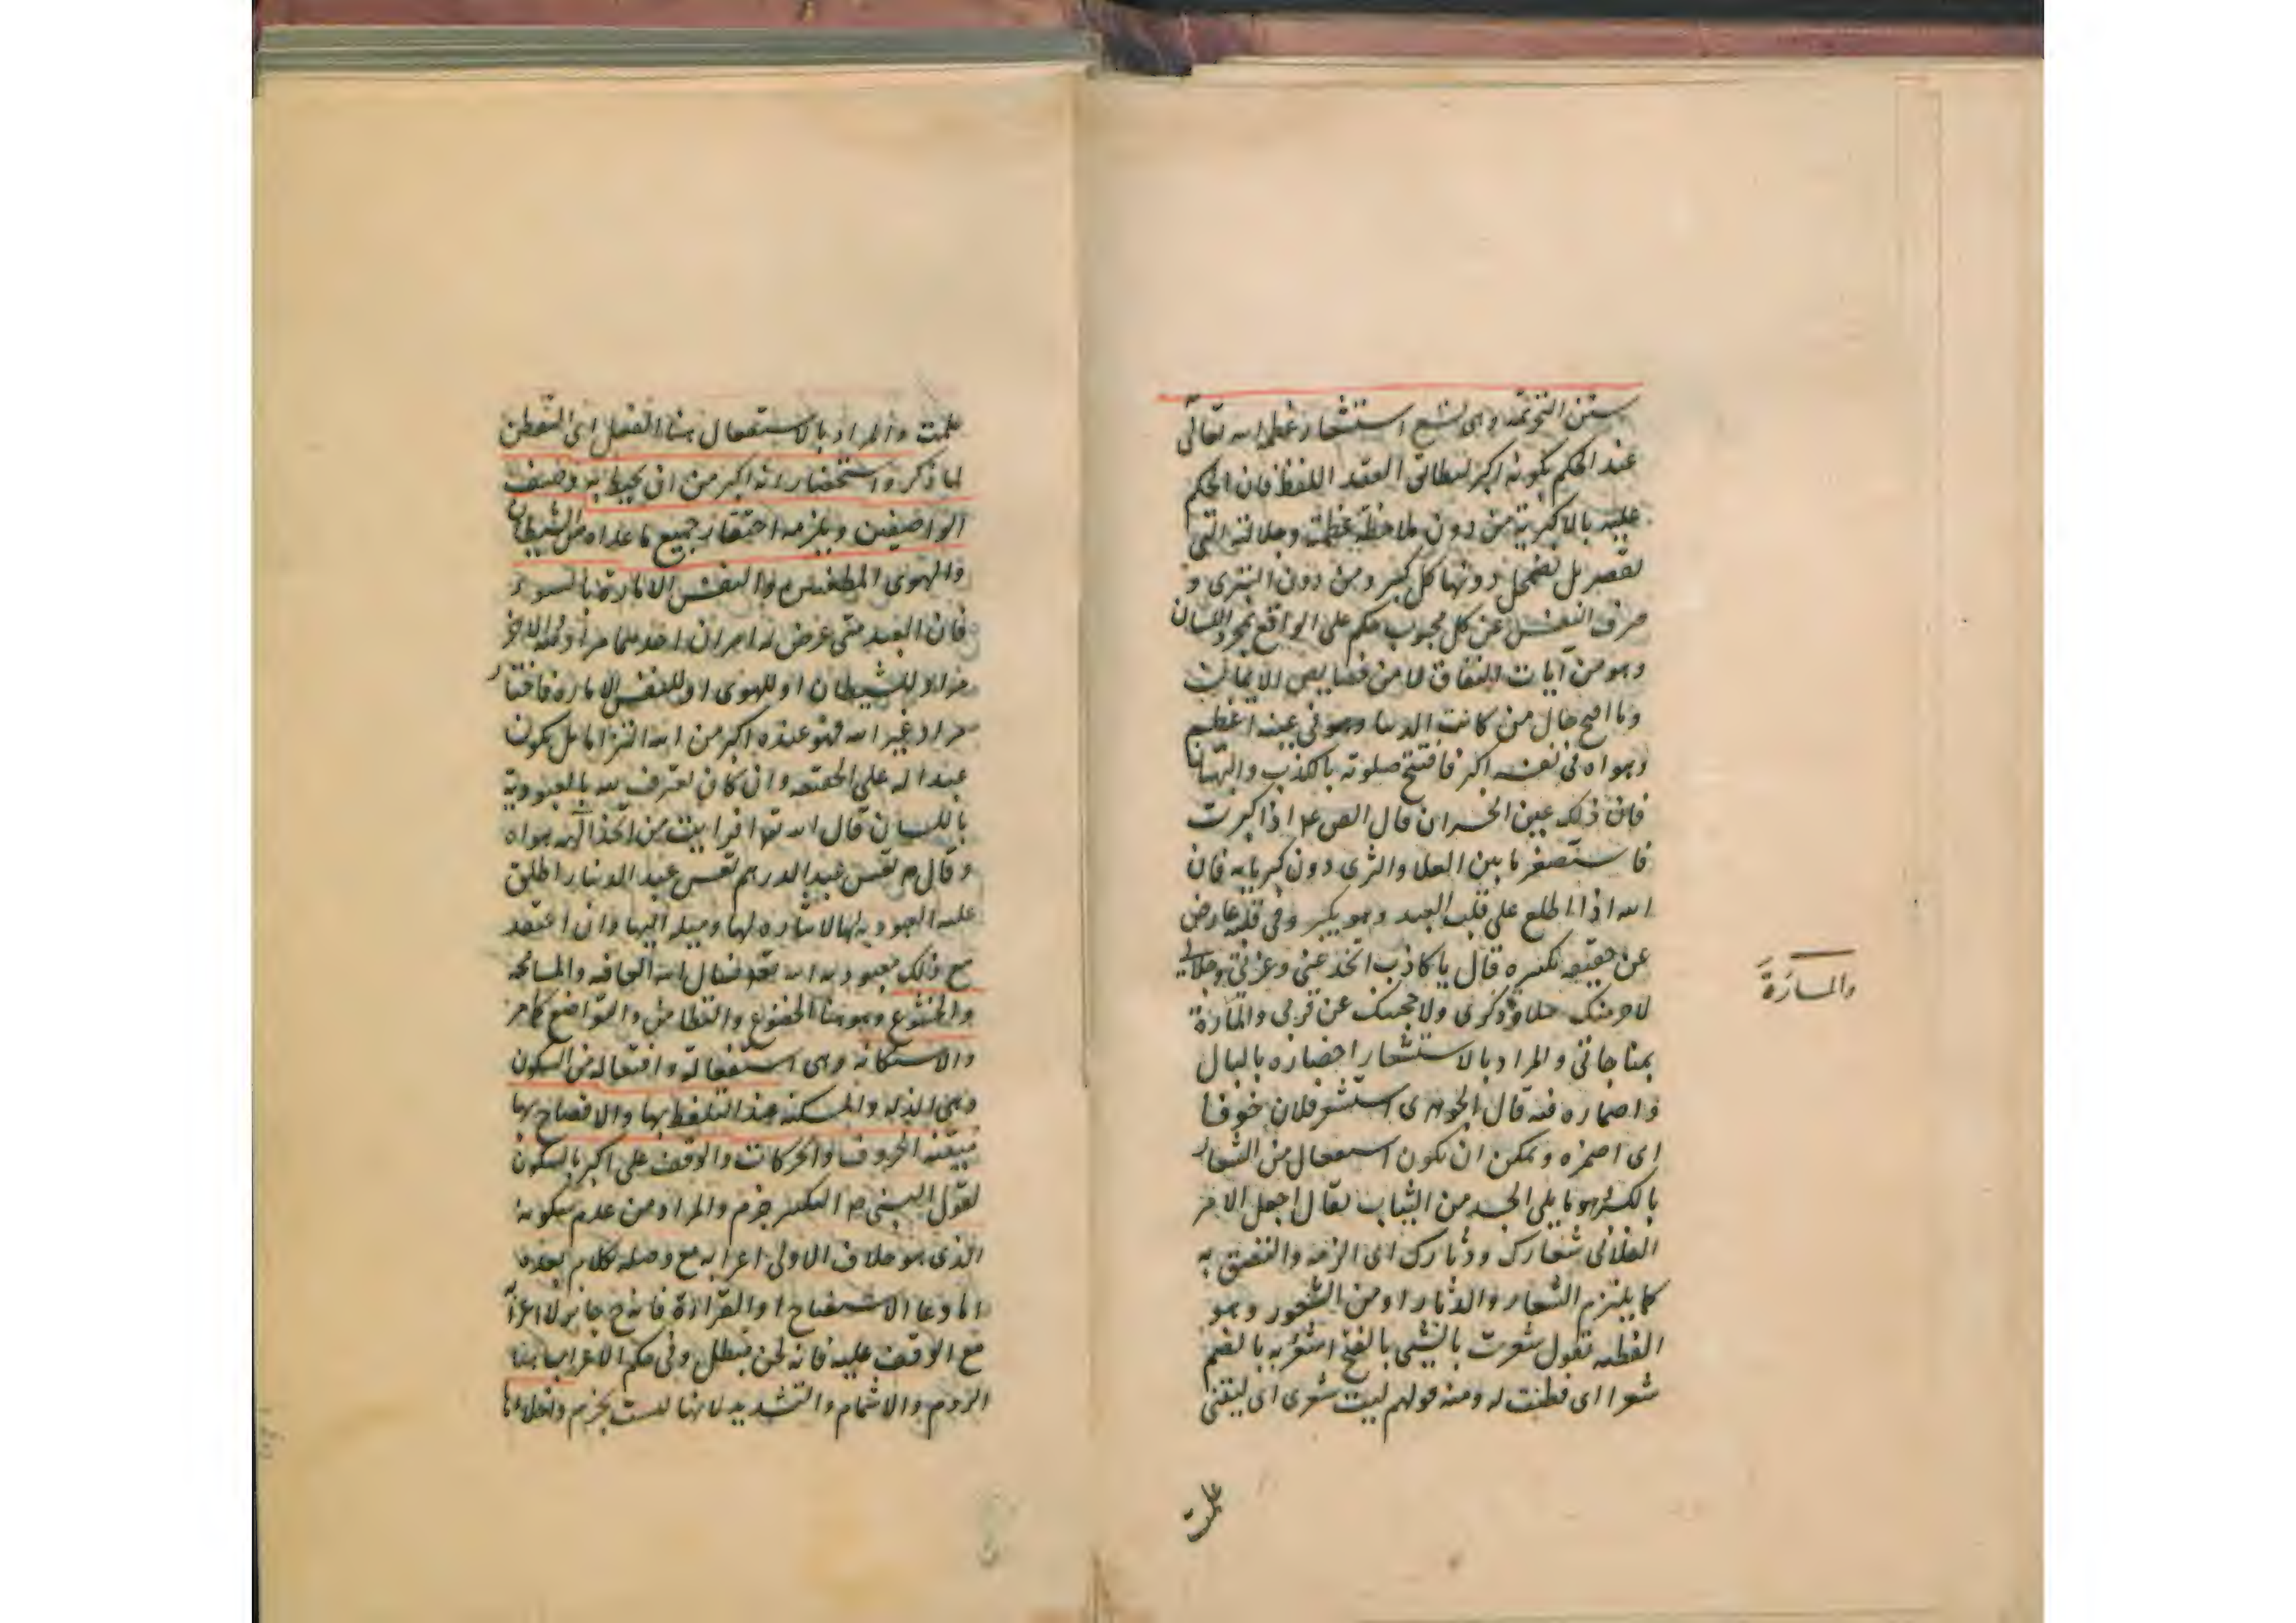 سنن التحريمة وهى تسع استشعار عظمة الله تعالى
عند الحكم بكونه اكبر ليطابق العقد اللفظ فان الحكم
عليه بالاكبرية من دون ملاحظة عظمته وجلالته التى
تقصر بل تضمحل دونها كل كبير ومن دون التبرى و
صرف النفس عن كل محبوب حكم على الواقع بمجرد اللسان
وهو من آيات النفاق لا من خصايص الايمان
وما اقبح حال من كانت الدنيا وهو فى عينه اعظم
وهواه فى نفسه اكبر فافتتح صلوته بالكذب والبهتان
فان ذلك عين الخسران قال الص ع اذا كبرت
فاستصغر ما بين العلا والثرى دون كبريايه فان
الله اذا اطلع على قلب العبد وهو يكبر وفى قلبه عارض
عن حقيقه تكبيره قال يا كاذب اتخدعنى وعزتى وجلالى
لاحرمنك حلاوة ذكرى ولاحجبنك عن قربى والمسارّة
والمسارّة
بمناجاتى والمراد بالاستشعار احضاره بالبال
واضماره فيه قال الجوهرى استشعر فلان خوفا
اى اضمره ويمكن ان يكون استفعال من الشعار
بالكسر وهو ما يلى الجسد من الثياب يقال اجعل الامر
الفلانى شعارك ودثارك اى الزمه والتصق به
كما يلتزم الشعار والدثار او من الشعور وهو
الفطنه تقول شعرت بالشى بالفتح اشعر به بالضم
شعرا اى فطنت له ومنه قولهم ليت شعرى اى ليتنى
علمت
علمت والمراد بالاستفعال هنا الفعل اى التفطن
لما ذكر واستحضار انه اكبر من ان يحيط به وصف
الواصفين ويلزمه احتقار جميع ما عداه من الشيطان
والهوى المطغيين والنفس الامارة بالسوء
فان العبد متى عرض له امران احدهما مراد الله والاخر
مراد للشيطان او للهوى او للنفس الاماره فاختار
مراد غير الله فهو عنده اكبر من الله التزاما بل يكون
عبدا له على الحقيقه وان كان يعترف لله بالعبودية
باللسان قال الله تع افرايت من اتخذ الهه هواه
وقال ص تعس عبد الدرهم تعس عبد الدينار اطلق
عليه العبوديه لها لايثاره لها وميله اليها وان اعتقد
مع ذلك معبوديه الله تع
والخشوع وهو هنا الخضوع والتطامن والتواضع كما مر
والاستكانه وهى استفعالة او افتعاله من السكون
وهى الذله والمسكنه عند التلفظ بها والافصاح بها
مبينه الحروف والحركات والوقف على اكبر بالسكون
لقول النبى ص التكبير جزم والمراد من عدم سكونه
الذى هو خلاف الاولى اعرابه مع وصله بكلام بعده
اما دعا الاستفتاح او القراءة فانه ح جايز لا اعرابه
مع الوقف عليه فانه لحن مبطل وفى حكم الاعراب هنا
الروم والاشمام والتشديد لانها ليست بجزم واخلاء